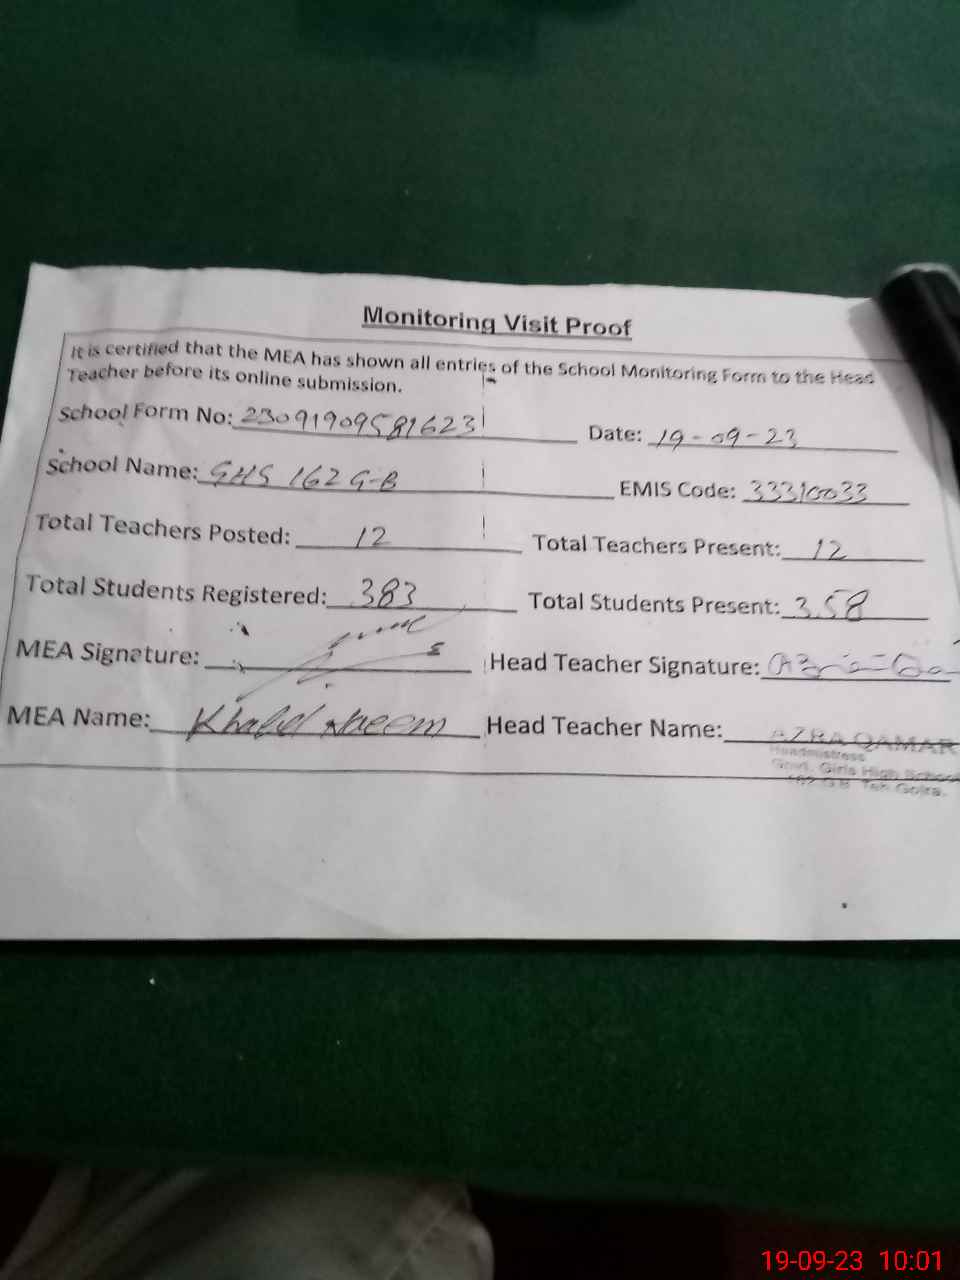 Monitoring Visit Proof
It is certified that the MEA has shown all entries of the School Monitoring Form to the Head
Teacher before its online submission.
School Form No: 23091909581623 Date: 19-09-23
School Name: GHS 162 G-B EMIS Code: 33310033
Total Teachers Posted: 12 Total Teachers Present: 12
Total Students Registered: 383 Total Students Present: 358
MEA Signature: Head Teacher Signature:
MEA Name: Khalid Naeem Head Teacher Name: AZRA QAMAR
Headmistress
Govt. Girls High School
162 G.B Teh Gojra.
19-09-23 10:01